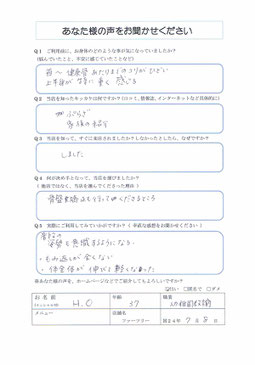 あなた様の声をお聞かせください
Q1 ご利用前に、お身体のどのような事が気になっていましたか?
(悩んでいたこと、不安に感じていたことなど)
首〜肩甲骨あたりまでのコリがひどい
上半身が
重く感じる
Q2 当店を知ったキッカケは何ですか?(口コミ、情報誌、インターネットなど具体的に)
家族の紹介
Q3 当店を知って、すぐに来店されましたか?しなかったとしたら、なぜですか?
しました
Q4 何が決め手となって、当店を選びましたか?
(他店ではなく、当店を選んでくださった理由)
骨盤矯正も行ってゆくださるところ
Q5 実際にご利用してみていかがですか?(率直な感想をお聞かせください)
普段の
姿勢を意識するようになる
・もみ返しが全くない
・体全体が伸びて軽くなった
あなた様の声を、ホームページなどでご紹介してもよろしいですか?
はい □匿名で □ダメ
お名前
H.O
年齢
37
職業
メニュー
店舗名
ファーツリー
24年7月8日